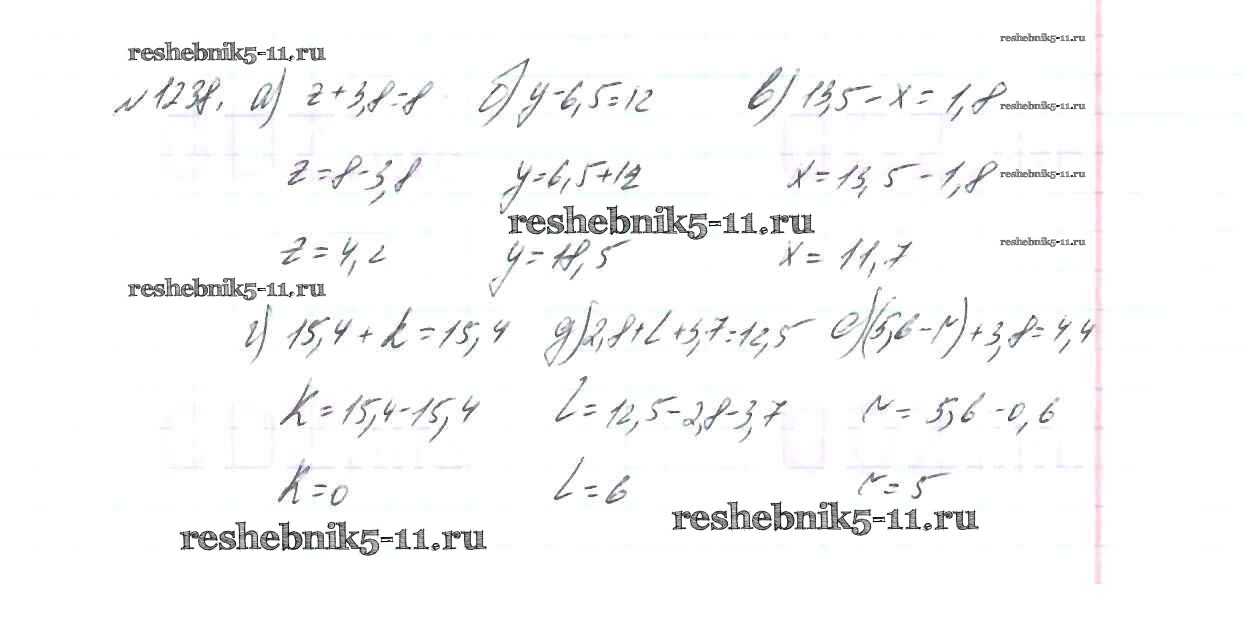 reshebnik5-11.ru reshebnik5-11.ru
№1238. а) z+3,8=8 б) y-6,5=12 в) 13,5-x=1,8 reshebnik5-11.ru
z=8-3,8 y=6,5+12 x=13,5-1,8 reshebnik5-11.ru
reshebnik5-11.ru
z=4,2 y=18,5 x=11,7 reshebnik5-11.ru
reshebnik5-11.ru
г) 15,4+k=15,4 д) 2,8+l+3,7=12,5 е) (5,6-r)+3,8=4,4
k=15,4-15,4 l=12,5-2,8-3,7 r=5,6-0,6
k=0 l=6 r=5
reshebnik5-11.ru reshebnik5-11.ru